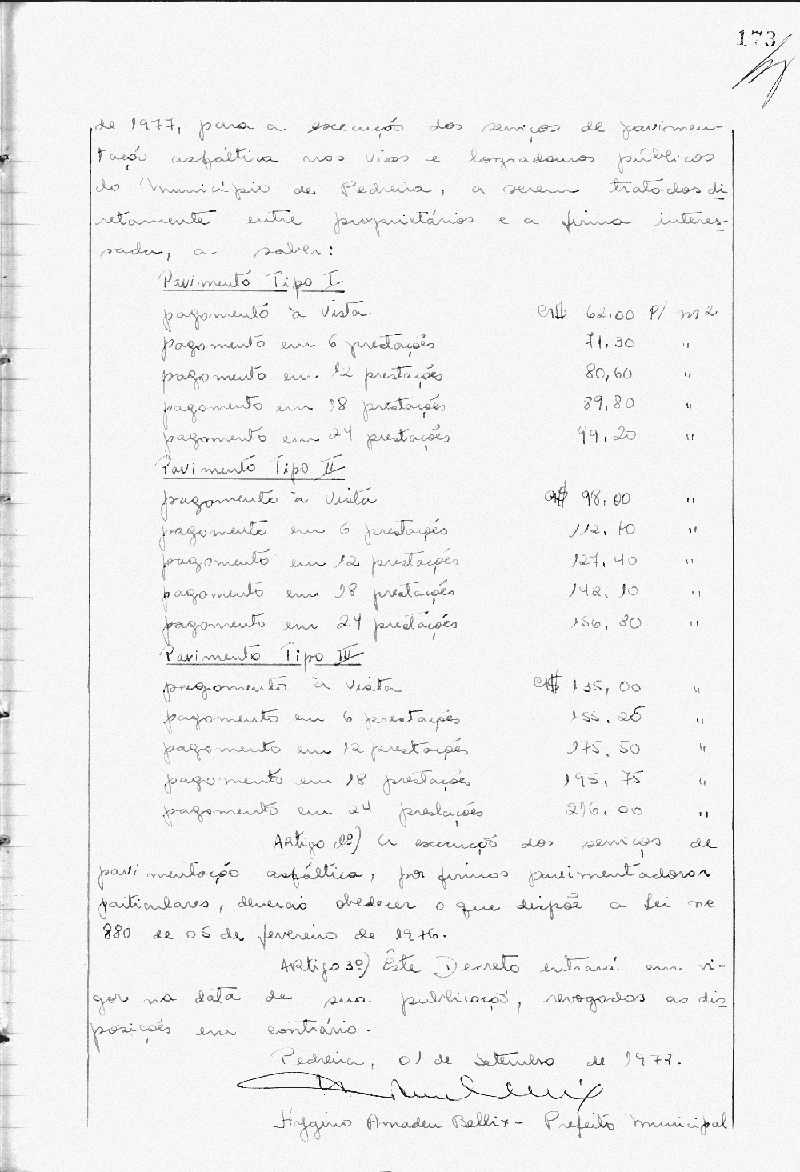 173
de 1977, para a execução dos serviços de pavimen-
tação asfáltica nas vias e logradouros públicos
do Município de Pedreira, a serem tratados di
retamente entre proprietários e a firma interes-
sada, a saber:
Pavimento Tipo I
pagamento à vista CR$ 62,00 P/ m2
pagamento em 6 prestações 71,30 "
pagamento em 12 prestações 80,60 "
pagamento em 18 prestações 89,80 "
pagamento em 24 prestações 99,20 "
Pavimento Tipo II
pagamento à vista CR$ 98,00 "
pagamento em 6 prestações 112,70 "
pagamento em 12 prestações 127,40 "
pagamento em 18 prestações 142,10 "
pagamento em 24 prestações 156,80 "
Pavimento Tipo III
pagamento à vista CR$ 135,00 "
pagamento em 6 prestações 155.25 "
pagamento em 12 prestações 175.50 "
pagamento em 18 prestações 195,75 "
pagamento em 24 prestações 216,00 "
Artigo 2º) A execução dos serviços de
pavimentação asfáltica, por firmas pavimentadoras
particulares, deverão obedecer o que dispõe a Lei nº
880 de 05 de fevereiro de 1976.
Artigo 3º) Êste Decreto entrará em vi-
gor na data de sua publicação, revogadas as dis
posições em contrário.
Pedreira, 01 de Setembro de 1977.
Hygino Amadeu Bellix - Prefeito Municipal